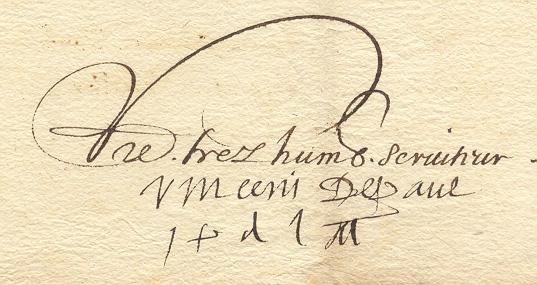 Vre. trez humb. seruiteur
Vincent Depaul
i p d l M